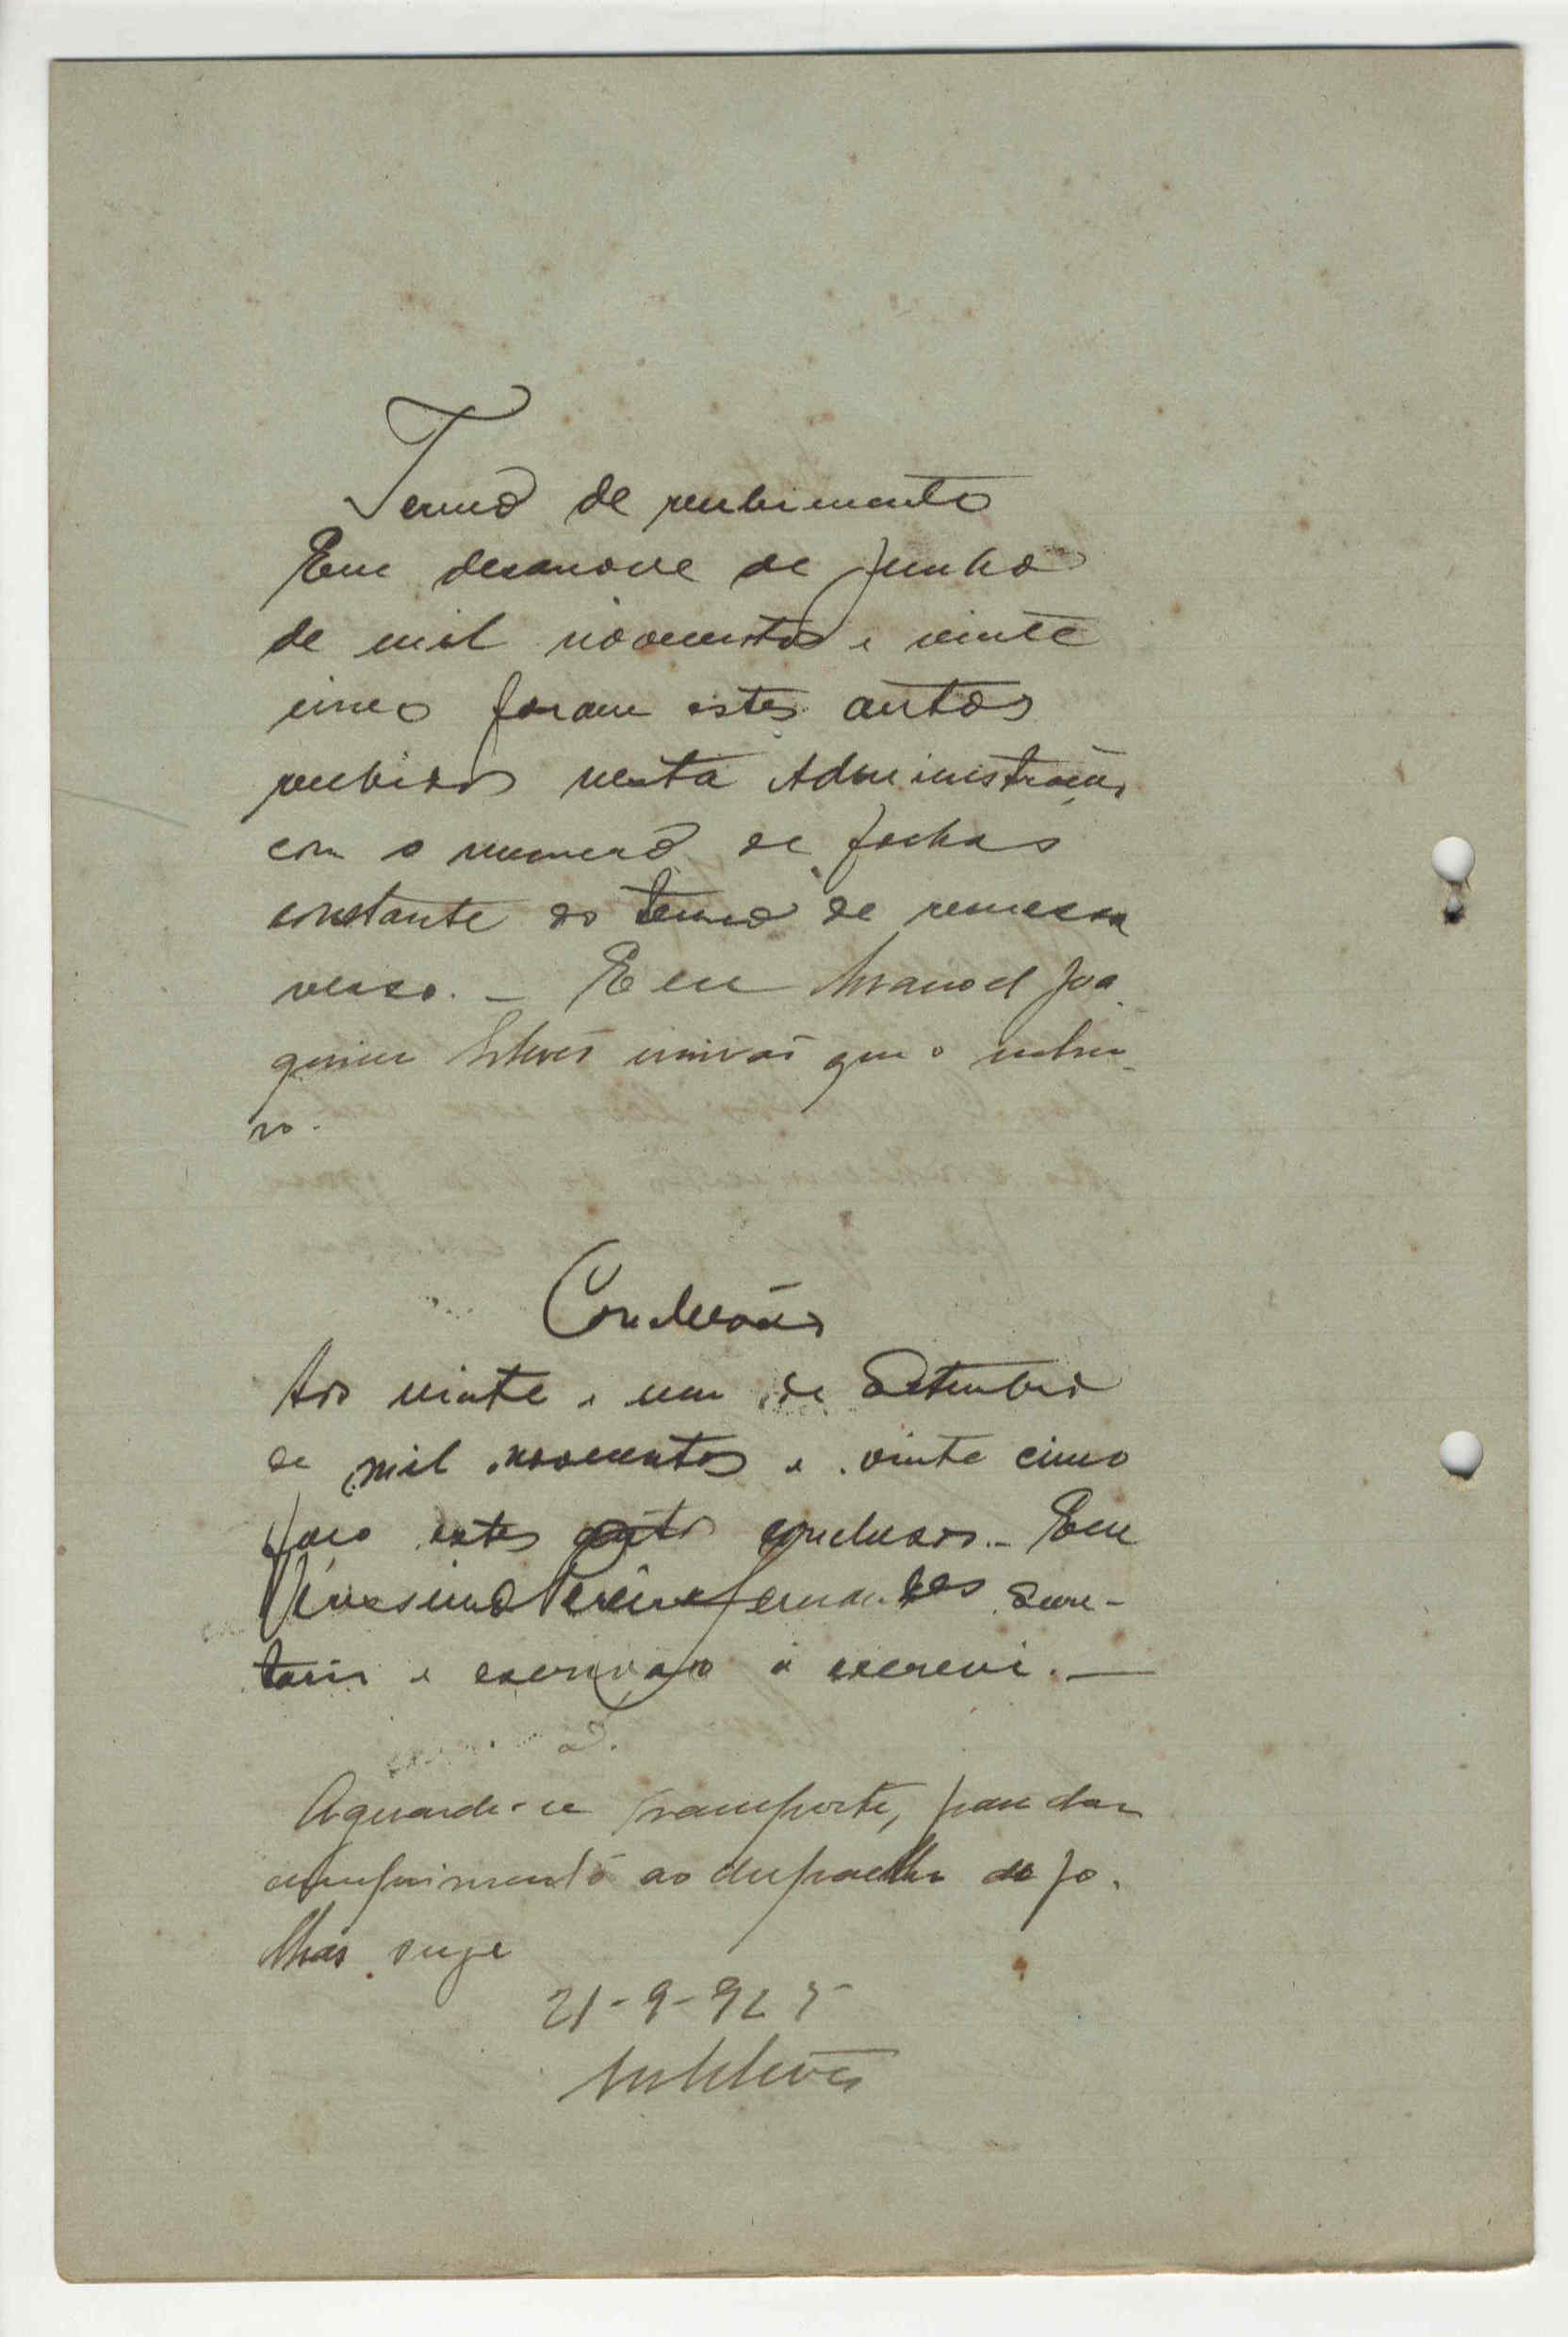 Termo de recebimento
Em desanove de Junho
de mil novecentos e vinte
cinco foram estes autos
recebidos nesta Administração
com o numero de folhas
constante do termo de remessa
verso. _ E eu Manoel Joa
quim Esteves escrivão que o subscre_
vo.
Conclusão
Aos vinte e um de Setembro
de mil novecentos e vinte cinco
faco estes autos conclusos._ Eu
Verissimo Pereira Fernandes Secre-
tario e escrivão o escrevi. _
Aguarde-se transporte, para dar
cumprimento ao despacho de fo.
lhas
21-9-925
MEsteves